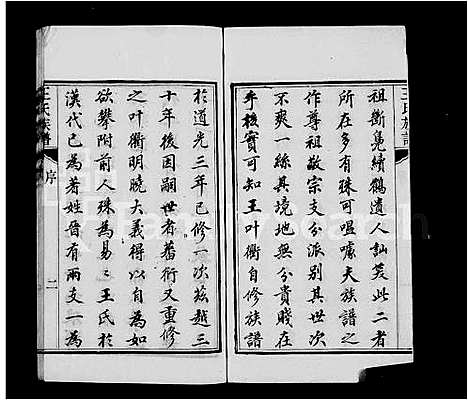 王氏族譜
祖斷凫續鶴遺人訕笑此二者
所在多有殊可嗢噱夫族譜之
作尊祖敬宗支分派別其世次
不爽一絲其境地無分貴賤在
乎核實可知王叶衢自修族譜
於道光三年已修一次茲越三
十年後因嗣世者蕃衍又重修
之叶衢明曉大義得以自為如
欲攀附前人殊為易易王氏於
漢代已為著姓晉有兩支一為
王氏族譜
序
二